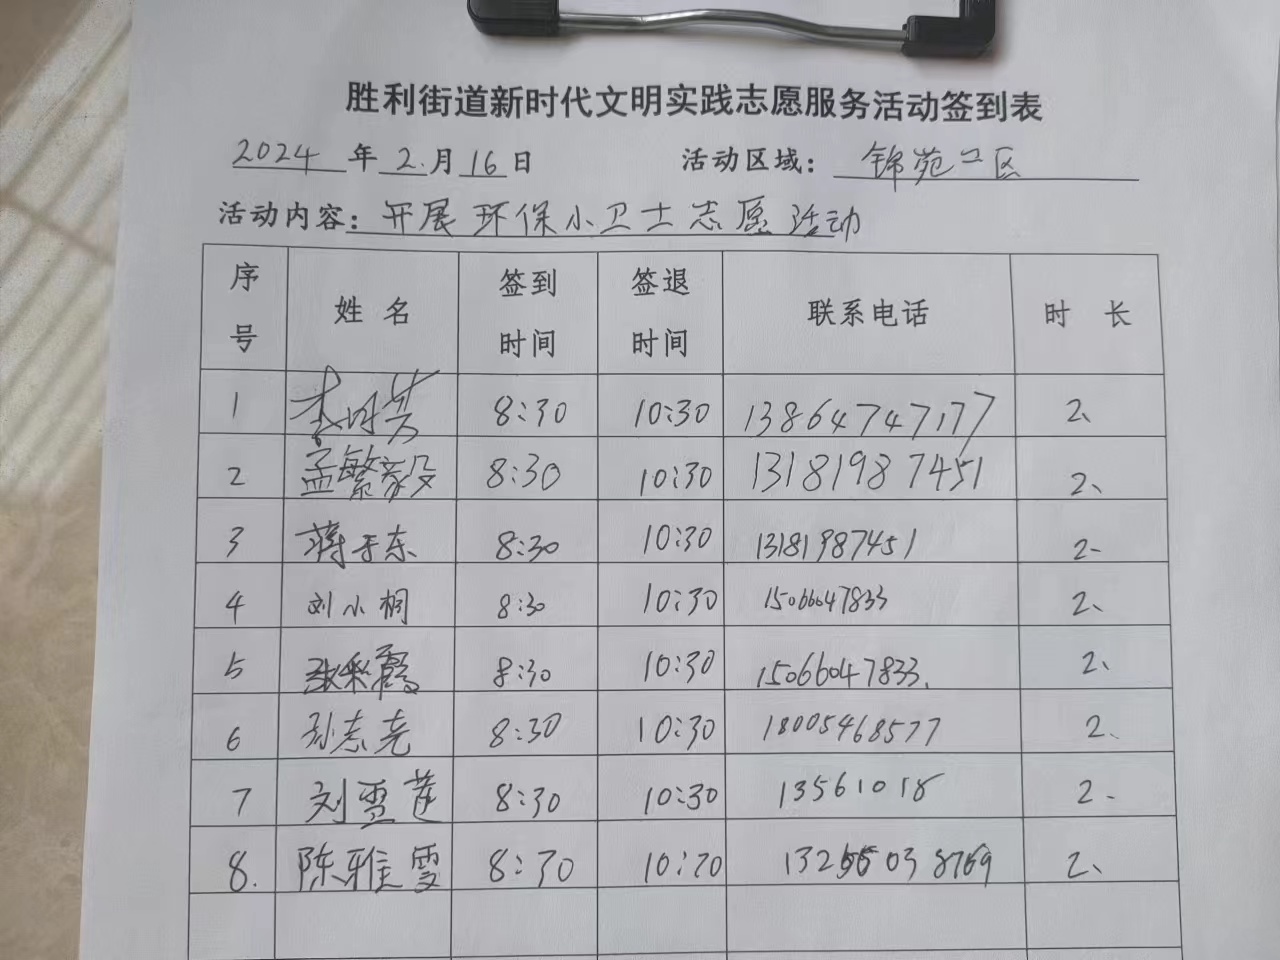 胜利街道新时代文明实践志愿服务活动签到表
2024 年 2.月 16 日 活动区域: 锦苑二区
活动内容: 开展环保小卫士志愿活动
序号 姓名 签到时间 签退时间 联系电话 时长
1 8:30 10:30 13864747177 2、
2 孟繁毅 8:30 10:30 13181987451 2、
3 蒋于东 8:30 10:30 13181987451 2-
4 刘小桐 8:30 10:30 15066047833 2、
5 张彩霞 8:30 10:30 15066047833. 2、
6 孙志尧 8:30 10:30 18005468577 2、
7 刘雪莲 8:30 10:30 13561018 2-
8. 陈雅雯 8:30 10:30 2、